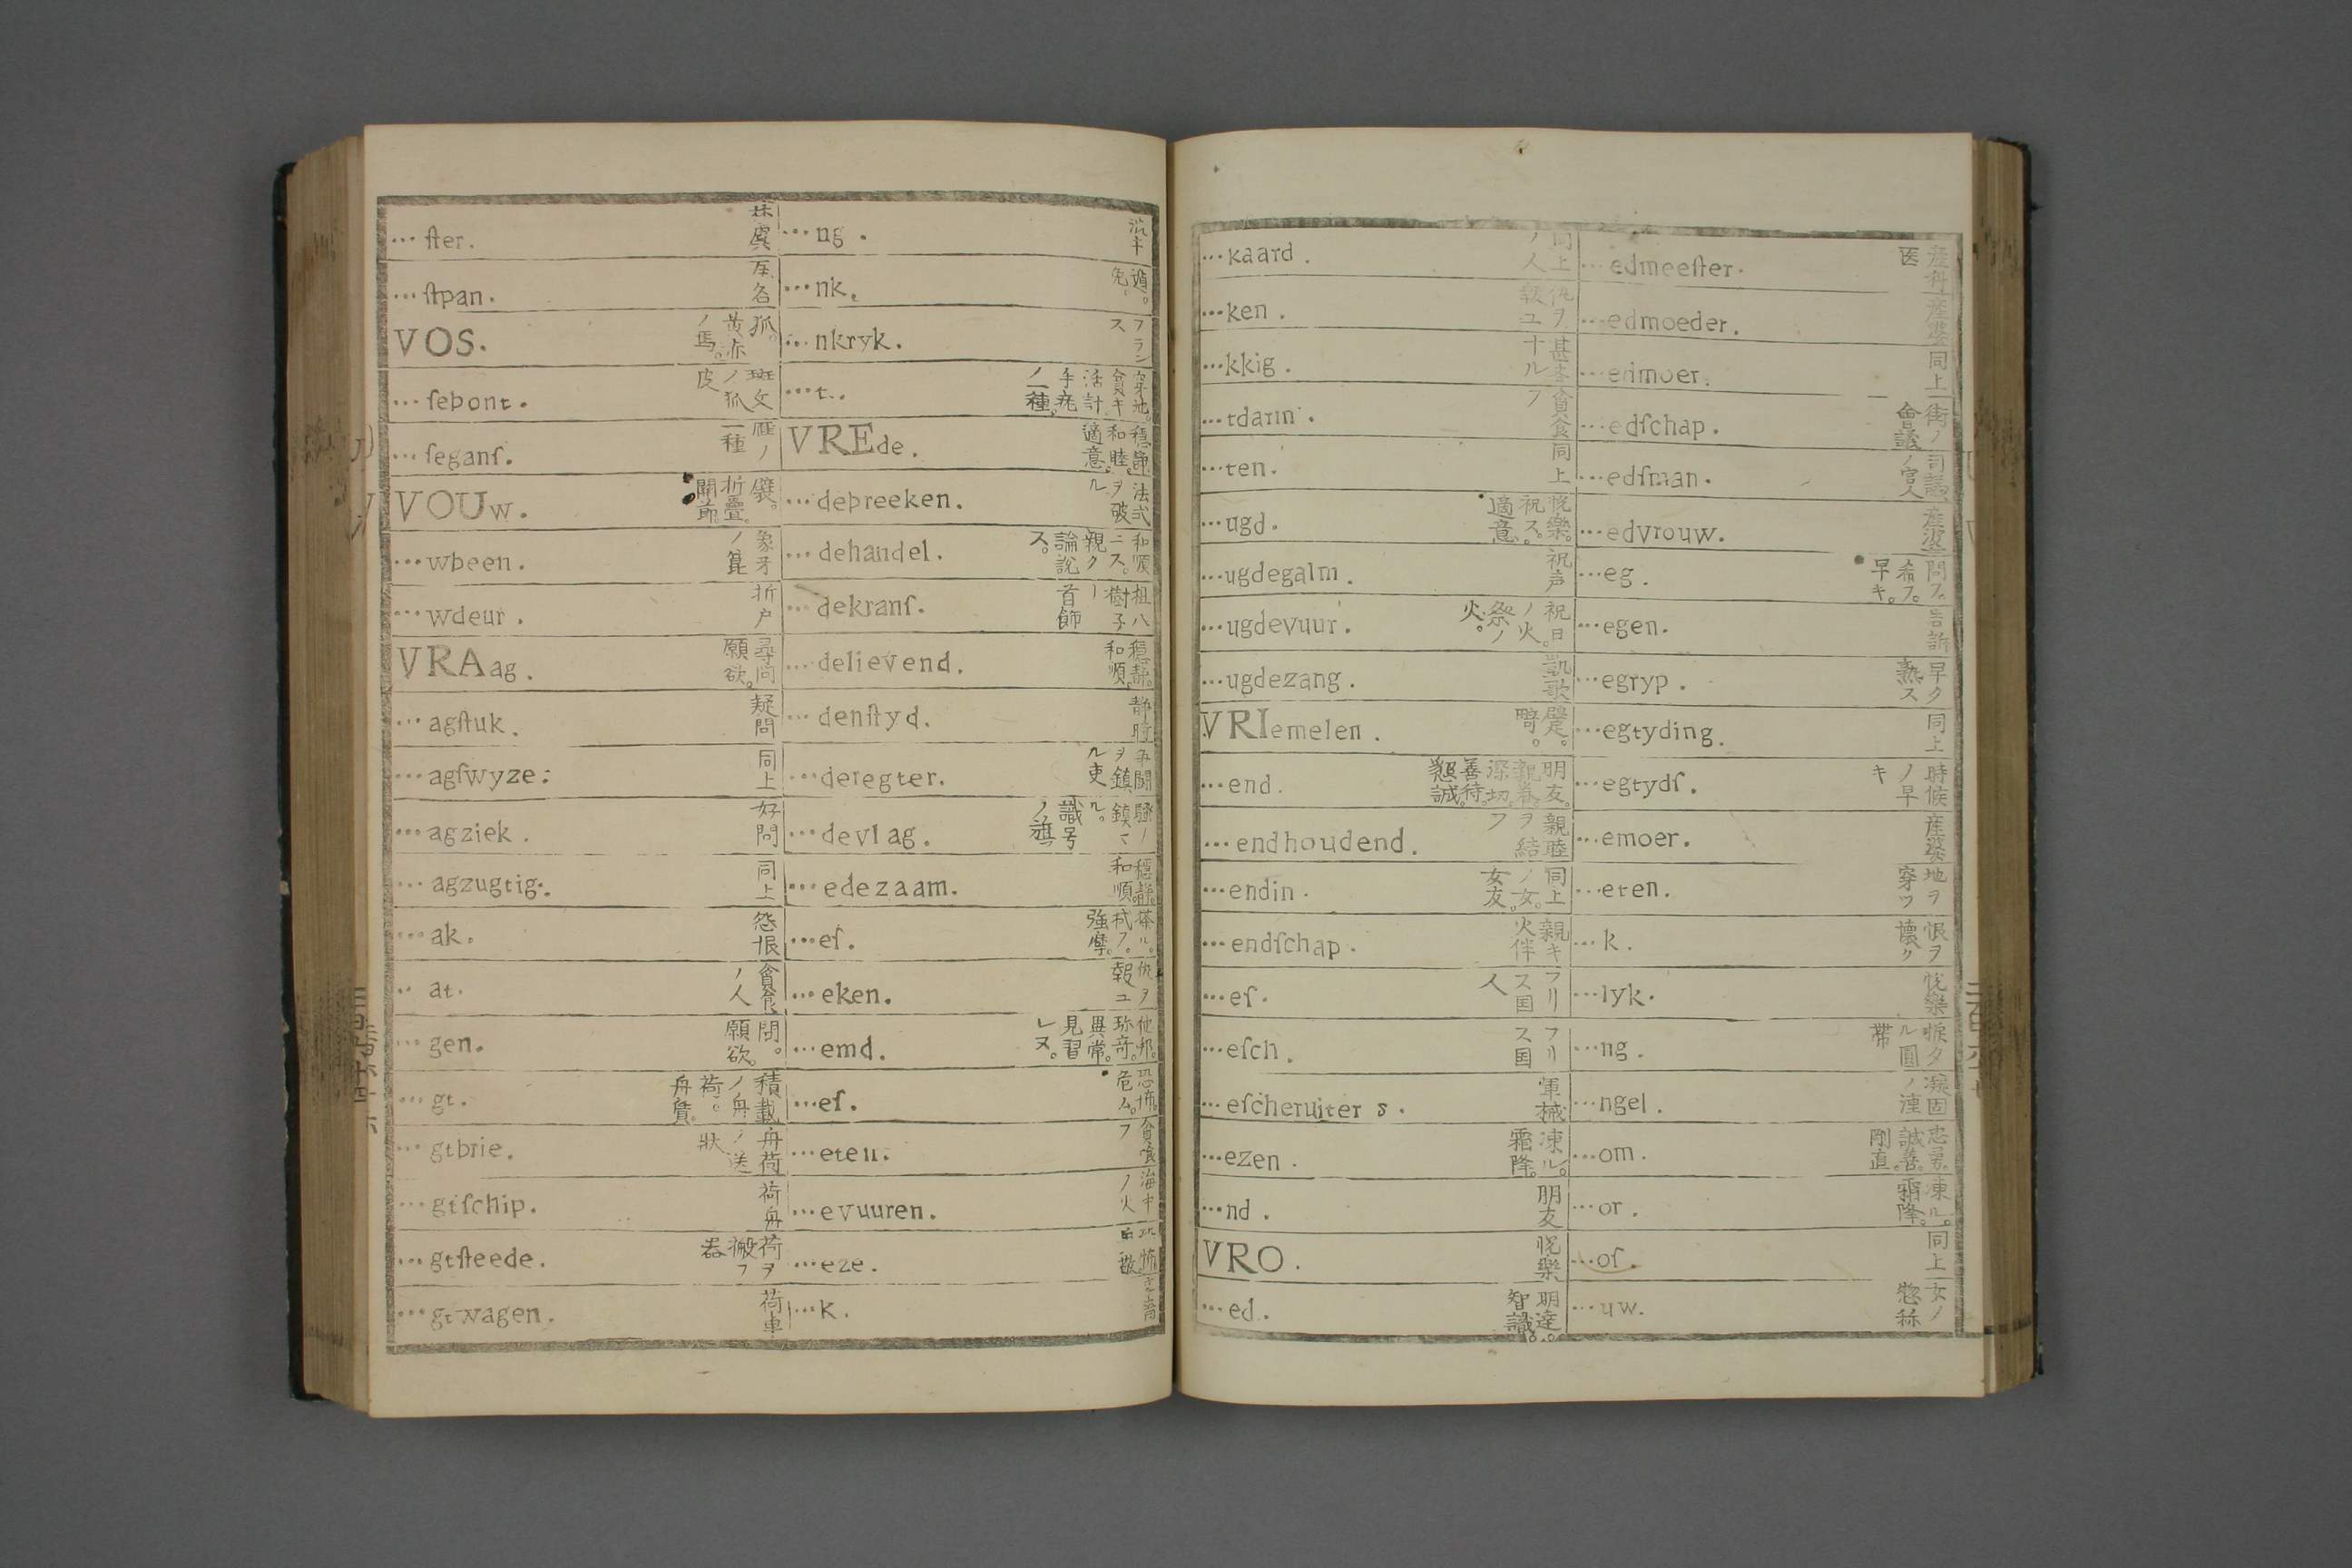 … ſter. 林虞
… ſtpan. 屋名
VOS. 狐。黄赤ノ馬。
… ſebont. 斑文ノ狐皮
… ſeganſ. 雁ノ一種
VOUw. 襞。折疊。關節。
… wbeen. 象牙ノ篦
… wdeur. 折戸
VRAag. 尋問願欲。
… agſtuk. 疑問
… agſwyze. 同上
… agziek. 好問
… agzugtig. 同上
… ak. 怨恨
… at. 貪食ノ人
… gen. 問。願欲。
… gt. 積載ノ舟荷。舟賃。
… gtbrie. 舟荷ノ送狀
… gtſchip. 荷舟
… gtſteede. 荷ヲ搬フ器
… gtwagen. 荷車
… ng.
… nk. 遁。免。
… nkryk. フランス
… t. 貧キ活計手疵ノ一種。
VREde. 穩靜和睦。適意。
… debreeken. 法式ヲ破ル
… dehandel. 和順ニス。親ク論說ス。
… dekranſ. 樹子首飾
… delievend. 穩靜。和順。
… denſtyd. 静時
… deregter. 争鬪ヲ鎮ル吏
… devlag. 騒ノ鎮マル。識号ノ旗
… edezaam. 穩靜。和順。
… eſ. 強摩。
… eken. 仇ヲ報ユ
… emd. 他邦。珎奇。異常。見習レヌ。
… eſ. 恐怖。危ム。
… eteu. 貪食フ
… evuuren. 海中ノ火
… eze. 恐怖
… k.
… kaard. 同上ノ人
… ken. 仇ヲ報ユ
… kkig. 甚吝ナル
… tdarm. 貪食フ
… ten. 同上
… ugd. 悦樂。祝ス。適意。
… ugdegalm. 祝声
… ugdevuur. 祝日ノ火。祭ノ火。
… ugdezang. 凱歌
VRIemelen. 躄。畸。
… end. 朋友。親眷。深切。善待。懇誠。
… endhoudend. 親睦ヲ結フ
… endin. 同上ノ女。女友。
… endſchap. 親キ火伴
… eſ. フリス国人
… eſch. フリス国
… eſcheruiter s. 軍械
… ezen. 凍ル。霜降。
… nd. 朋友
VRO. 悦樂
… ed. 明達。智識。
… edmeeſter. 産科医
… edmoeder. 産婆
… edmoer. 同上
… edſchap. 街ノ會議
… edſman. 司議ノ官人
… edvrouw. 産婆
… eg. 問フ。希フ。早キ。
… egen. 告訴
… egryp. 早ク熟ス
… egtyding. 同上
… egtydſ. 時候ノ早キ
… emoer. 産婆
… eten. 地ヲ穿ツ
… k. 恨ヲ懐ク
… lyk. 悦樂
… ng. ル圓帯
… ngel. 凝固ノ湩
… om. 忠勇。誠善。剛直。
… or. 凍ル。霜降。
… oſ. 同上
… uw. 女ノ惣称